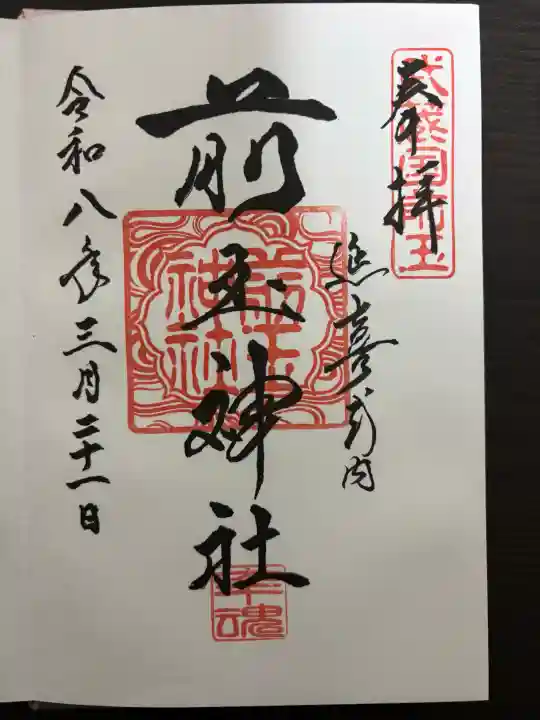 奉拝
武蔵国前玉
延喜式内
前玉神社
前玉
神社
幸魂
令和八年三月二十一日